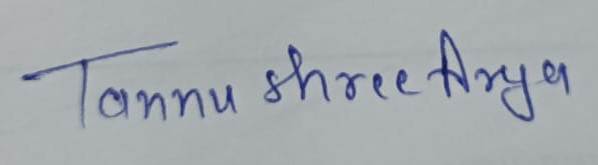 Tannu shree Arya